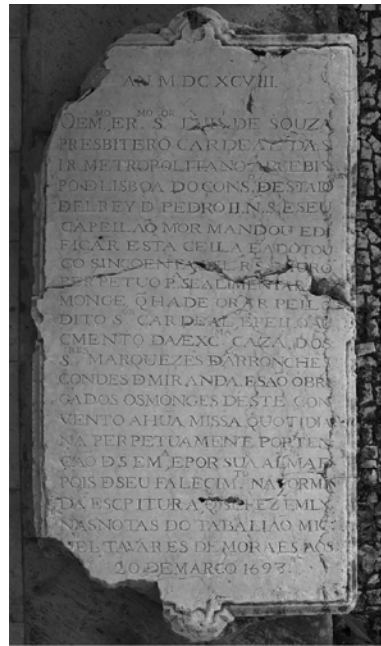 AN M DC XCVIII.
OEMMO ER.MO S.OR LUIS DE SOUZA
PRESBITERO CARDEAL DA S.
IR METROPOLITANO ARCEBIS
PO D LISBOA DO CONS. DESTADO
DEL REY D PEDRO II. N. S. E SEU
CAPEILAÕ MOR MANDOU EDI
FICAR ESTA CEILA E A DOTOU
CÕ SINCOENTA MIL RS DE JURO
PERPETUO P.A SE ALIMENTAR
MONGE Q HA DE ORAR PEILO
DITO S.OR CARDEAL, E PEILO AU
CMENTO DA EXC.MA CAZA DOS
S.RES MARQUEZES DARRONCHES
CONDES D MIRANDA. E SAÕ OBRI
GADOS OS MONGES DESTE CON
VENTO A HUA MISSA QUOTIDIA
NA PERPETUAMENTE POR TEN
CAÕ D S EM.A E POR SUA ALMA
POIS D SEU FALECIM.TO NA FORMA
DA ESCPITURA Q SE FEZ EM LX
NAS NOTAS DO TABALIAÕ MIG
UEL TAVARES DE MORAES AOS
20 DE MARCO 1698.